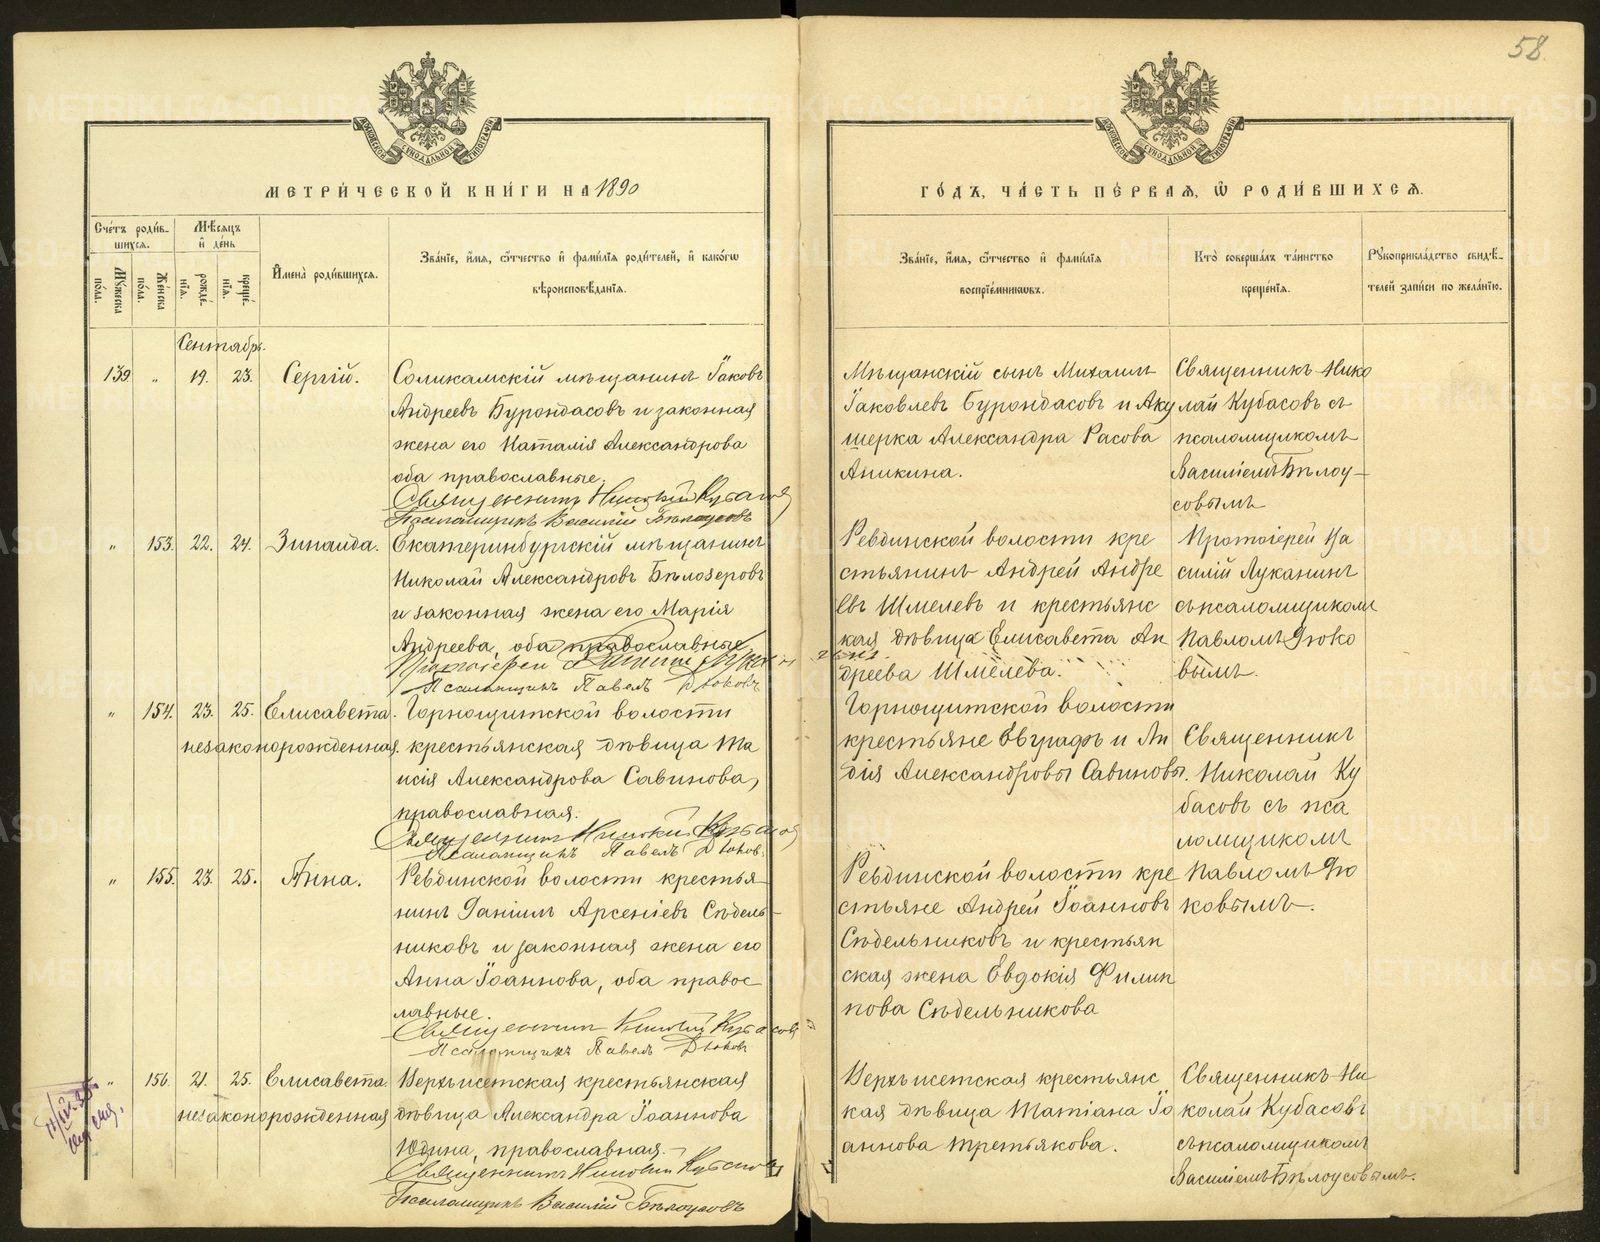 58
МЕТРИ́ЧЕСКОЙ КНИ́ГИ НА 1890
ГО́ДЪ, ЧА́СТЬ ПЕ́РВАЯ, Ѡ РОДИ́ВШИХСЯ.
Сче́тъ роди́в-
шихся.
Мѣ́сяцъ
и де́нь
Му́жеска по́ла.
Же́нска по́ла.
рожде́-
нїя.
креще́-
нїя.
Имена̀ роди́вшихся.
Зва́нїе, и́мя, о́тчество и фами́лїя роди́телей, и како́гѡ
вѣроисповѣ́данїя.
Зва́нїе, и́мя, о́тчество и фами́лїя
воспрїе́мникѡвъ.
Кто̀ соверша́лъ та́инство
креще́нїя.
Рукоприкла́дство свидѣ́-
телей за́писи по жела́нїю.
Сентябрь.
139 " 19. 23. Сергій.
Соликамскій мѣщанинъ Іаковъ
Андреевъ Бурондасовъ и законная
жена его Наталія Александрова
оба православные.
Священникъ Николай Кубасовъ
Псаломщикъ Василій Бѣлоусовъ
Мѣщанскій сынъ Михаилъ
Іаковлевъ Бурондасовъ и Аку
шерка Александра Расова
Аникина.
Священникъ Нико
лай Кубасовъ съ
псаломщикомъ
Василіемъ Бѣлоу-
совымъ
" 153. 22. 24. Зинаида.
Екатеринбургскій мѣщанинъ
Николай Александровъ Бѣлозеровъ
и законная жена его Марія
Андреева, оба православные
Протоіерей Василій Луканинъ
Псаломщикъ Павелъ Дюковъ
Ревдинской волости кре
стьянинъ Андрей Андре
евъ Шмелевъ и крестьянс
кая дѣвица Елисавета Ан
дреева Шмелева.
Протоіерей Ва
силій Луканинъ
съ псаломщикомъ
Павломъ Дюко
вымъ.
" 154. 23. 25. Елисавета.
незаконорожденная.
Горнощитской волости
крестьянская дѣвица Та
исія Александрова Савинова,
православная.
Священникъ Николай Кубасовъ
Псаломщикъ Павелъ Дюковъ.
Горнощитской волости
крестьяне Евграфъ и Ли
дія Александровы Савиновы.
Священникъ
Николай Ку
басовъ съ пса
ломщикомъ
Павломъ Дю
ковымъ.
" 155. 23. 25. Анна.
Ревдинской волости крестья-
нинъ Даніилъ Арсеніевъ Сѣдель-
никовъ и законная жена его
Анна Іоаннова, оба правос-
лавные.
Священникъ Николай Кубасовъ
Псаломщикъ Павелъ Дюковъ
Ревдинской волости кре
стьяне Андрей Іоанновъ
Сѣдельниковъ и крестьян
ская жена Евдокія Филип
пова Сѣдельникова
" 156. 21. 25. Елисавета.
незаконорожденная
Верхъисетская крестьянская
дѣвица Александра Іоаннова
Юдина, православная.
Священникъ Николай Кубасовъ
Псаломщикъ Василій Бѣлоусовъ
Верхъисетская крестьянс
кая дѣвица Татіана Іо
аннова Третьякова.
Священникъ Ни
колай Кубасовъ
съ псаломщикомъ
Василіемъ Бѣлоусовымъ.